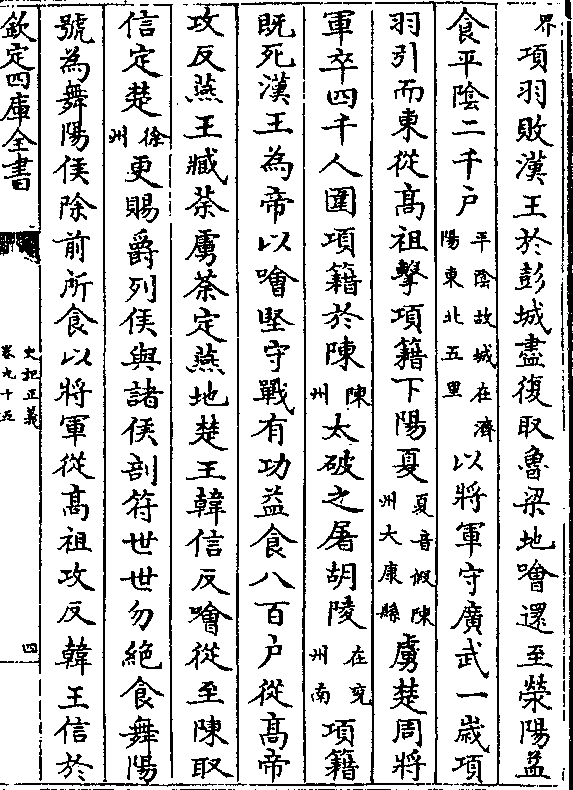 界項羽敗漢王於彭城盡復取魯梁地噲還至滎陽益
食平陰二千户平陰故城在濟陽東北五里以將軍守廣武一嵗項
羽引而東從髙祖擊項籍下陽夏夏音假陳州大康縣虜楚周將
軍卒四千人圍項籍於陳陳州太破之屠胡陵在兖州南項籍
既死漢王為帝以噲堅守戰有功益食八百户從髙帝
攻反燕王臧荼虜荼定燕地楚王韓信反噲從至陳取
信定楚徐州更賜爵列侯與諸侯剖符世世勿絶食舞陽
號為舞陽侯除前所食以將軍從髙祖攻反韓王信於
欽定四庫全書
史記正義
卷九十五
四